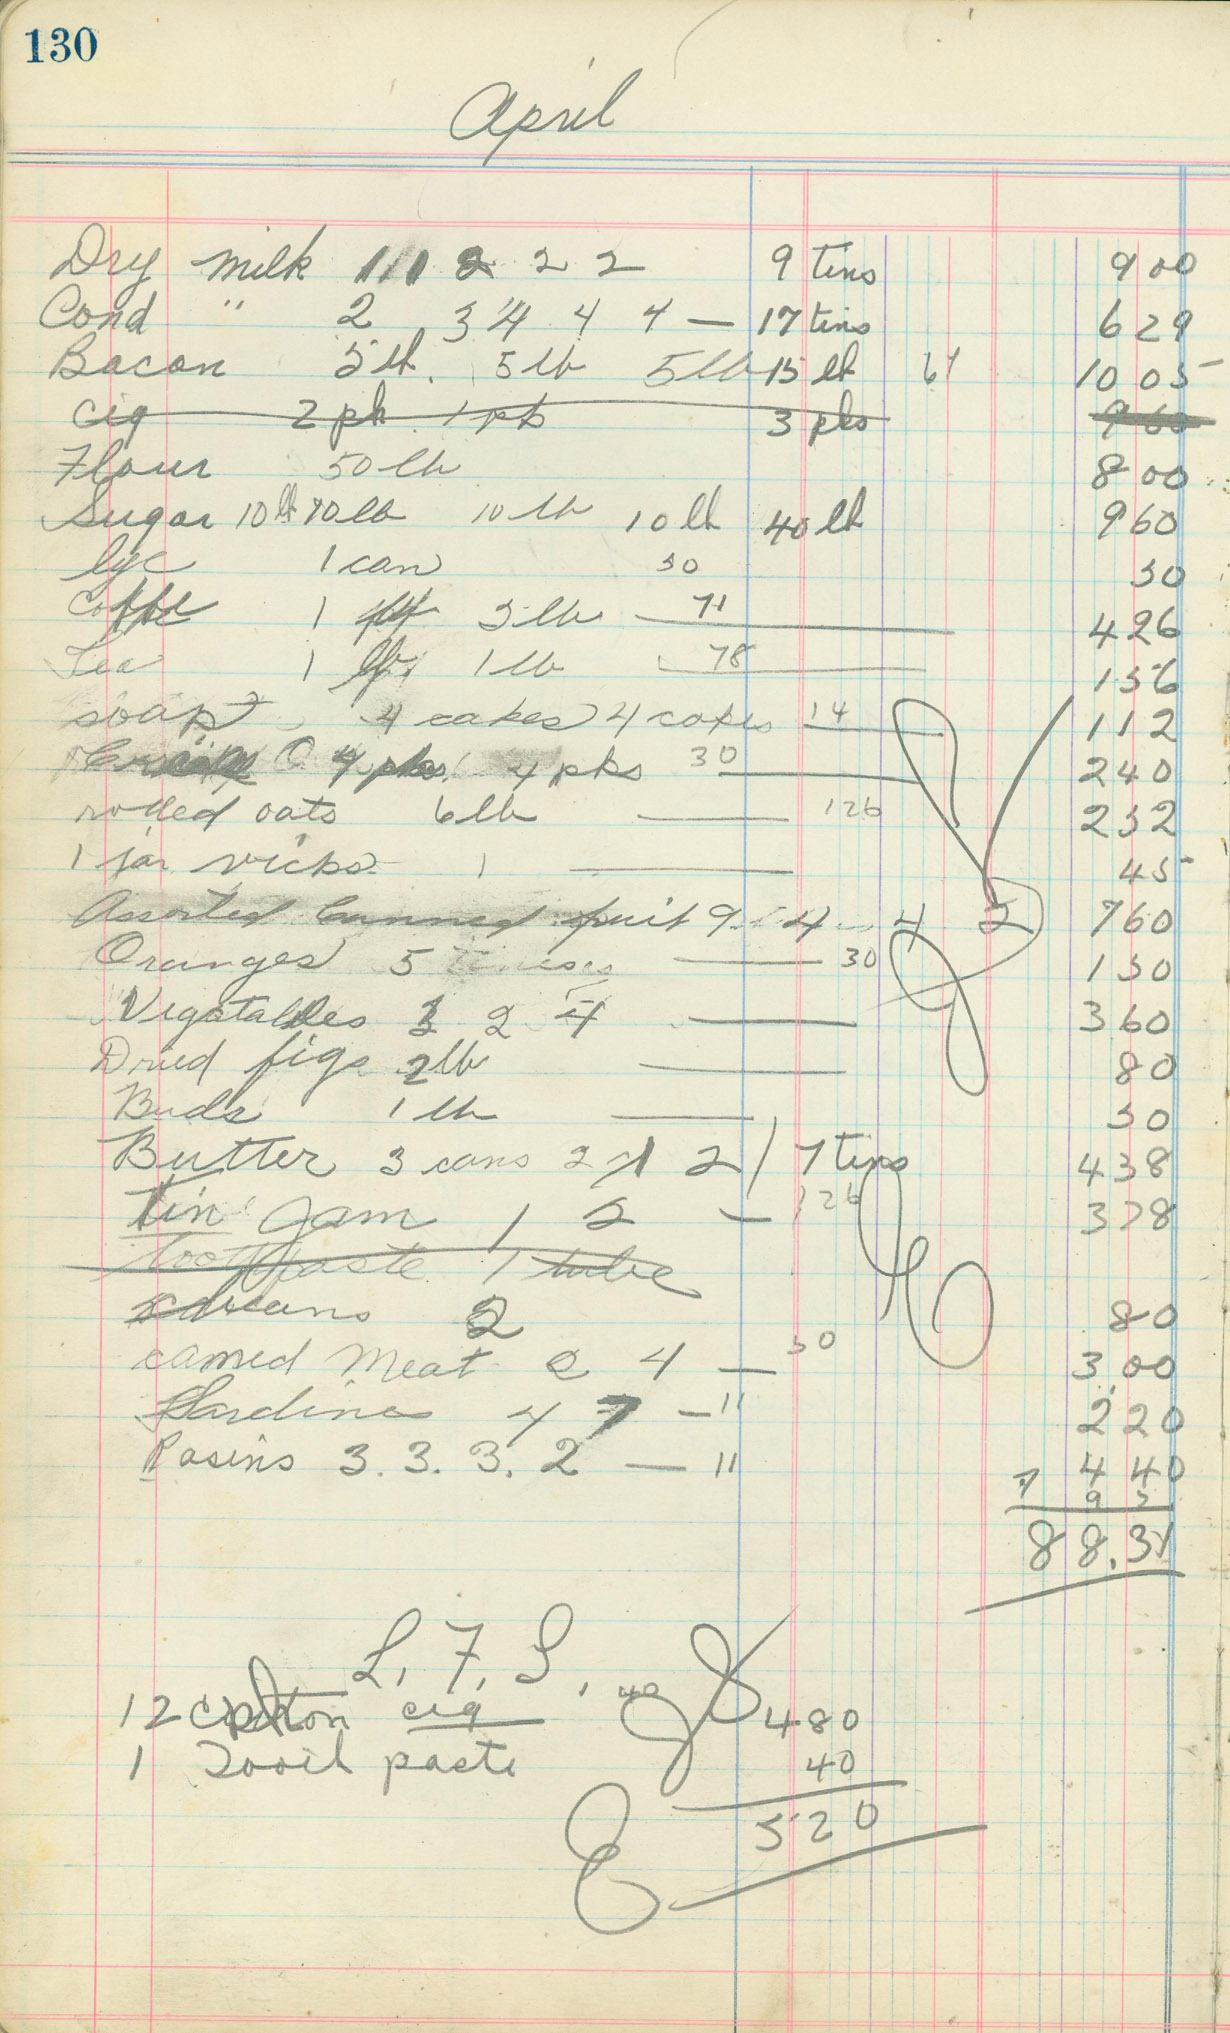 130
April
Dry milk 1 1 1 2 2 2 9 tins 9 00
Cond " 2 3 4 4 4 — 17 tins 6 29
Bacon 5 lb. 5 lb 5 lb 15 lb 67 10 05
cig 2 pk 1 pk 3 pks 9 60
Flour 50 lb 8 00
Sugar 10 lb 10 lb 10 lb 10 lb 40 lb 9 60
lye 1 can 30 30
Coffee 1 3 lb 71 4 26
Tea 1 lb 1 lb 78 1 56
soap 4 cakes 4 cakes 14 1 12
4 pks 4 pks 30 2 40
rolled oats 6 lb — 126 2 52
1 jar vicks 1 — 45
Assorted Canned fruit 9 4 4 2 7 60
Oranges 5 — 30 1 50
Vegetables 3 2 4 — 3 60
Dried figs 2 lb — 80
Buds 1 lb — 50
Butter 3 cans 2 1 2 / 7 tins 4 38
Tin Jam 1 2 — 126 3 78
tooth paste 1 tube
2 80
canned Meat 2 4 — 50 3.00
Sardines 4 7 — 11 2 20
Rasins 3. 3. 3. 2 — 11 4 40
7 9 5
88.34
L. F. S.
12 cig 40 4 80
1 Tooth paste 40
5 20